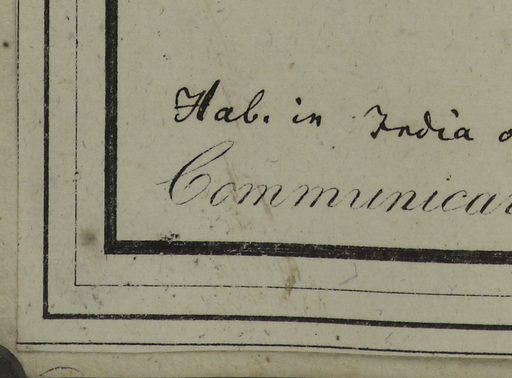 Hab. in India
Communicav